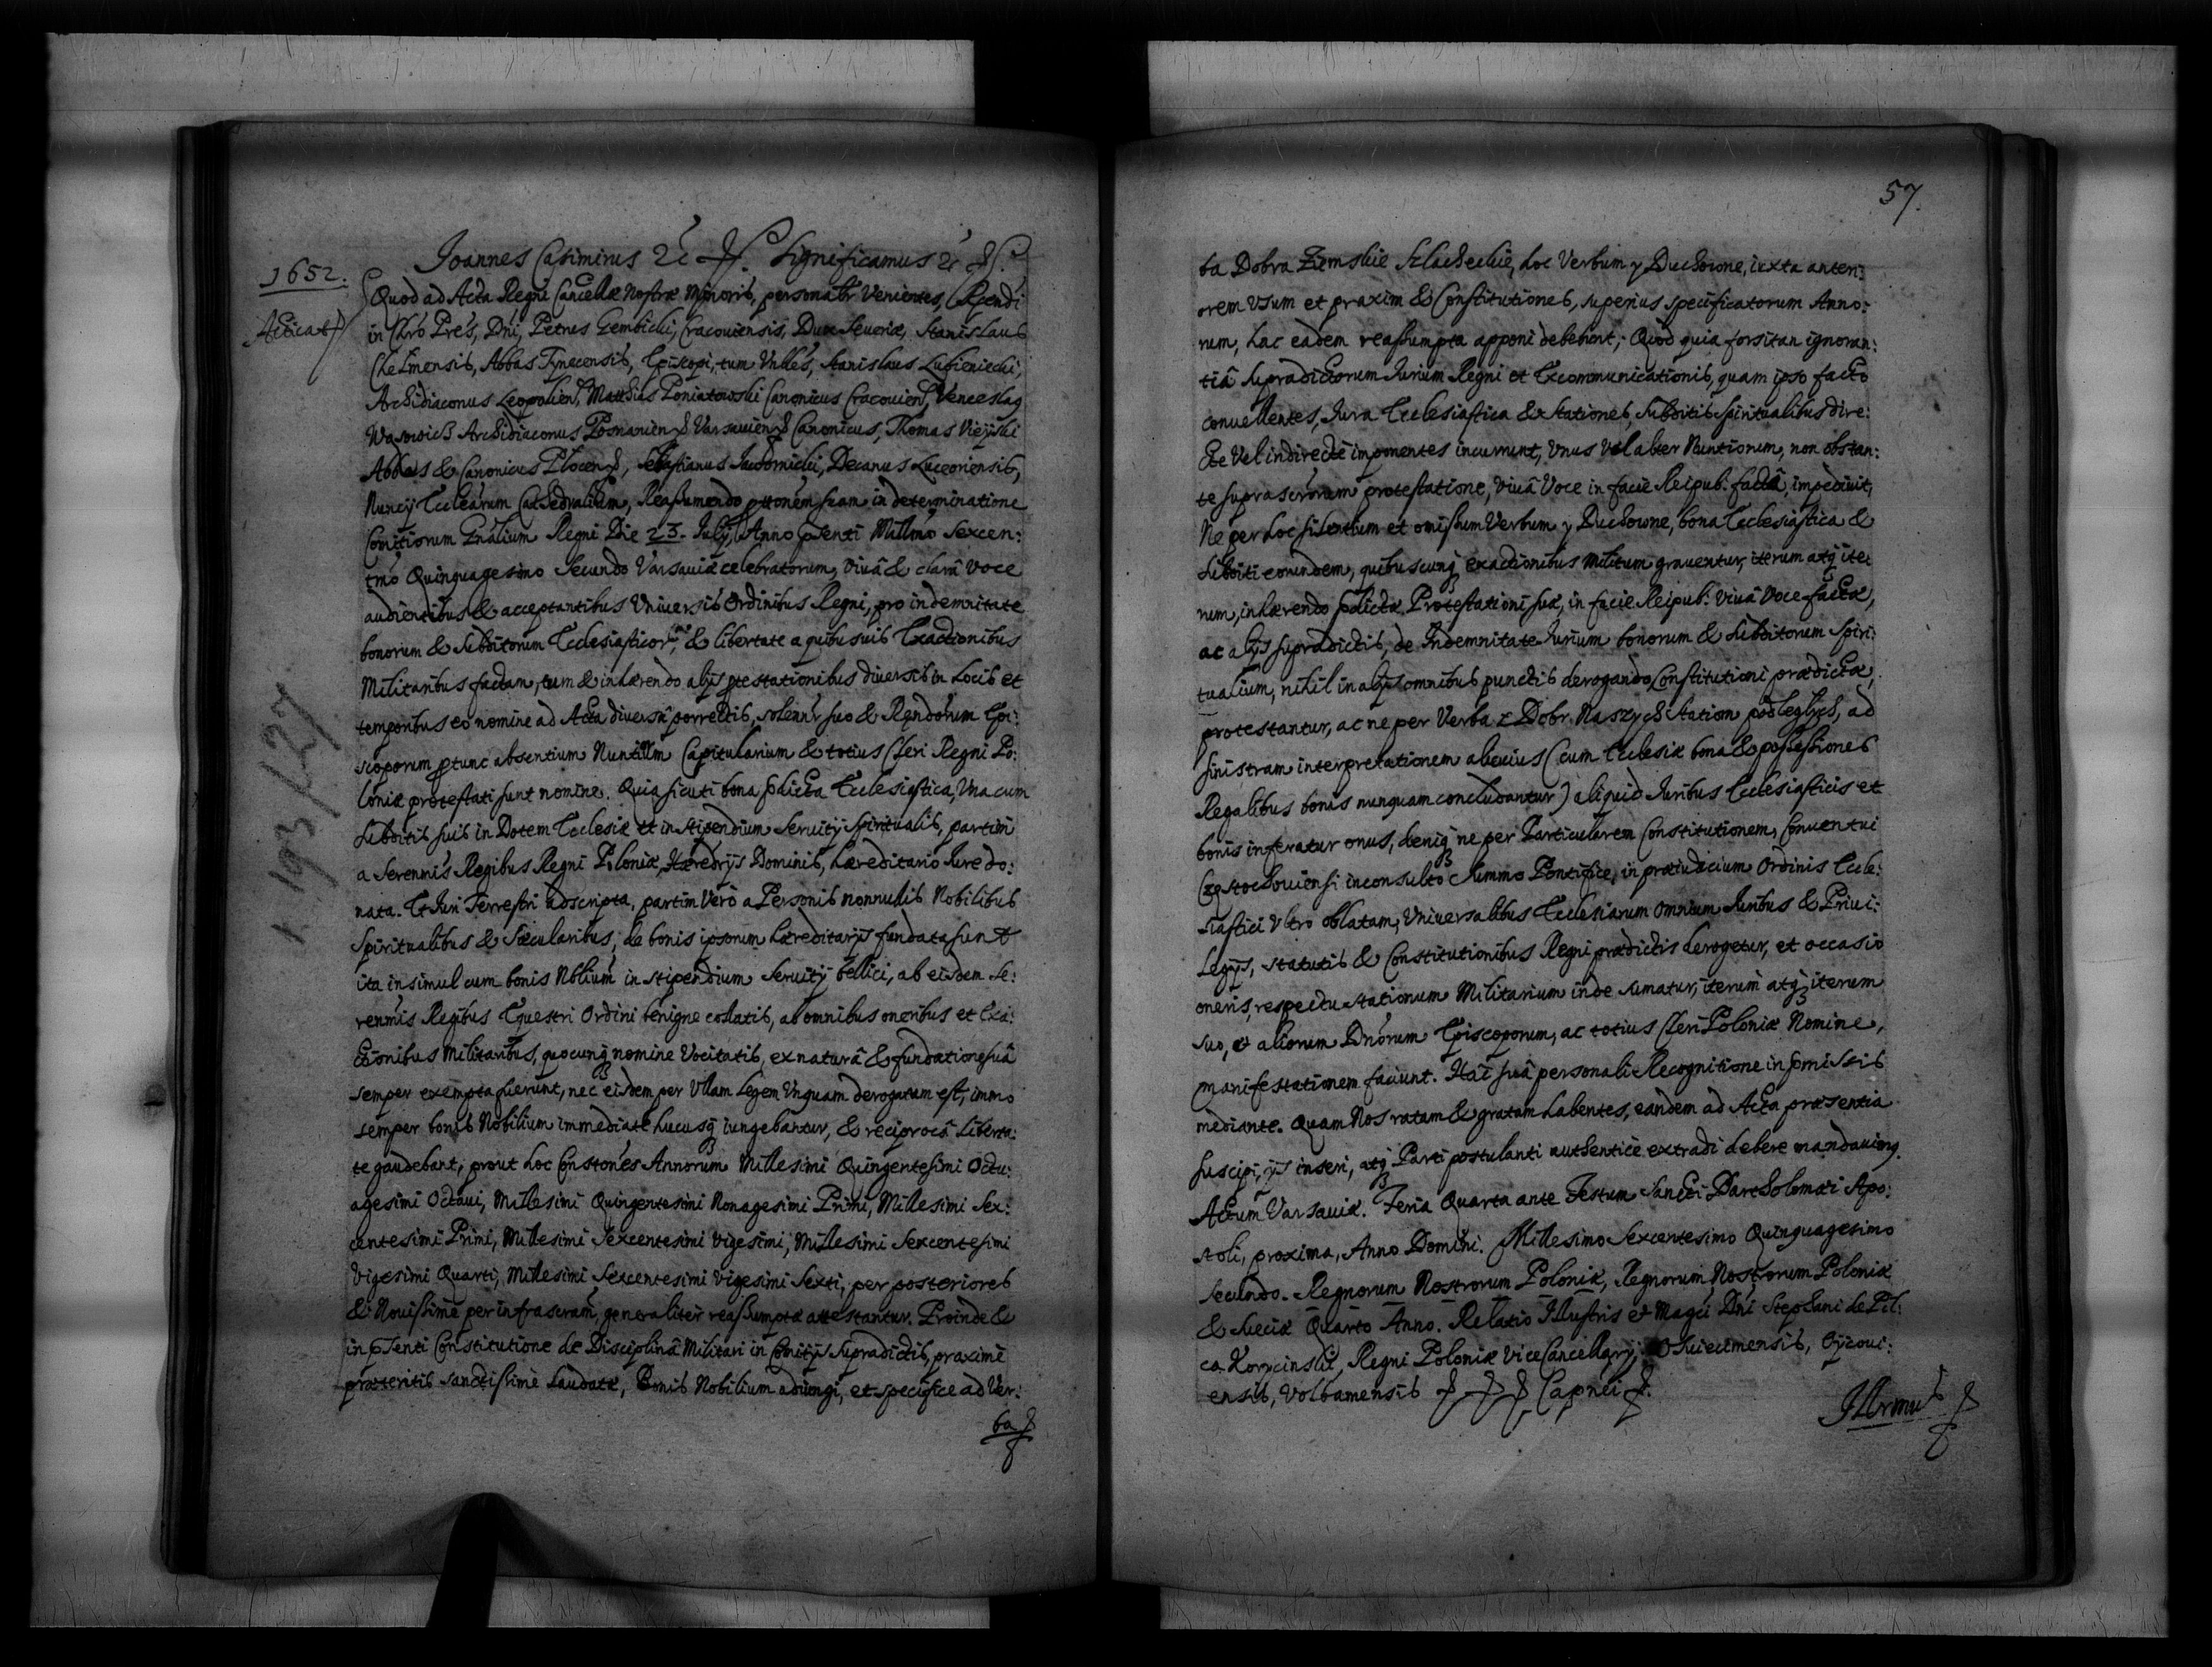 1652.
Joannes Casimirus &c Significamus &c
Quod ad Acta Regni Cancellæ Nostræ Minoris, personalr Venientes, Rendi
in Chro Pres, Dni, Petrus Gembicki Cracouiensis, Dux Seueriæ, Stanislaus
Chelmensis, Abbas Tynecensis, Episcopi, tum Vnlles, Stanislaus Lubieniecki,
Archidiaconus Leopolien, Matthias Poniatowski Canonicus Cracouien, Venceslaq
Archidiaconus Posnanien Varsauien Canonicus, Thomas Vieyski
Abbas & Canonicus Plocen, Sebastianus Decanus Luceoriensis,
Nuncij Ecclearum Cathedralium, Reassumendo suam in determinatione
Comitiorum Gnalium Regni Die 23. Julij, Anno pnti Millmo Sexcen:
tmo Quinquagesimo Secundo Varsauiæ celebratorum, viuâ & clarâ voce
audientibus & acceptantibus Vniuersis Ordinibus Regni, pro indemnitate
bonorum & subditorum Ecclesiasticor, & libertate a quibusuis Exactionibus
Militaribus factam, tum & inhærendo alijs ptestationibus diuersis in Locis et
temporibus eo nomine ad Acta diuersa porrectis, solennr suo & Rendorum Epi:
scoporum ptunc absentium Nuntium Capitularium & totius Cleri Regni Po:
loniæ protestati sunt nomine. Quia sicuti bona pdicta Ecclesiastica, Vna cum
subditis suis in Dotem Ecclesiæ et in stipendium Seruitij Spiritualis, partim
a Serennis Regibus Regni Poloniæ, Hæredrijs Dominis, hæreditario Iure do:
nata. Et Iuri Terrestri adscripta, partim Verò a Personis nonnullis Nobilibus
Spiritualibus & Sæcularibus, de bonis ipsorum hæreditarijs fundata sunt
ita insimul cum bonis Nblium in stipendium Seruitij bellici, ab eisdem Se:
rennis Regibus Equestri Ordini benigne collatis, ab omnibus oneribus et Exa:
ctionibus Militaribus, quocunq nomine Vocitatis, ex naturâ & fundatione suâ
semper exempta fuerunt, nec eisdem per Vllam Legem Vnquam derogatum est, immo
semper bonis Nobilium immediate hucusq iungebantur, & reciprocâ liberta:
te gaudebant, prout hoc Constones Annorum Millesimi Quingentesimi Octu:
agesimi Octaui, Millesimi Quingentesimi Nonagesimi Primi, Millesimi Sex:
centesimi Primi, Millesimi Sexcentesimi Vigesimi, Millesimi Sexcentesimi
Vigesimi Quarti, Millesimi Sexcentesimi Vigesimi Sexti, per posteriores
& Nouissime per infrascram, generaliter reassumptæ attestantur. Proinde &
in psenti Constitutione de Disciplinâ Militari in Comitijs supradictis, proxime
præteritis sanctissime Laudatæ, Bonis Nobilium adiungi, et specifice ad Ver:
ba
57.
ba Dobra Ziemskie Szlacheckie, hoc Verbum y Duchowne, iuxta anteri:
orem Vsum et praxim & Constitutiones, superius specificatorum Anno:
rum, hac eadem reassumpta apponi debebant; Quod quia forsitan ignoran:
tiâ supradictorum Iurium Regni et Excommunicationis, quam ipso facto
conuellentes, Iura Ecclesiastica & Stationes, subditis Spiritualibus dire:
cte Vel indirecte imponentes incurrunt, Vnus Vel alter Nuntiorum, non obstan:
te suprascrorum protestatione, Viuâ Voce in facie Reipub. factâ, impediuit,
Ne per hoc silentium et omissum Verbum y Duchowne, bona Ecclesiastica &
subditi eorundem, quibuscunq exactionibus Militum grauentur, iterum atq ite:
rum, inhærendo pdictæ Protestationi suæ, in facie Reipub. Viuâ Voce factæ,
ac alijs supradictis, de Indemnitate Iurium bonorum & subditorum Spiri:
tualium, nihil in alijs omnibus punctis derogando Constitutioni prædictæ,
protestantur, ac ne per Verba z Dobr Naszych Stationi podległych, ad
sinistram interpretationem alicuius (cum Ecclesiæ bona & possessiones
Regalibus bonis nunquam concludantur) aliquid Iuribus Ecclesiasticis et
bonis inferatur onus, deniq ne per Particularem Constitutionem, Conuentui
Częstochouiensi inconsulto Summo Pontifice, in præiudicium Ordinis Eccle:
siastici Vltro oblatam, Vniuersalibus Ecclesiarum omnium Iuribus & Priui:
legijs, Statutis & Constitutionibus Regni prædictis derogetur, et occasio
oneris, respectu stationum Militarium inde sumatur, iterum atq iterum
suo, & aliorum Dnorum Episcoporum, ac totius Cleri Poloniæ Nomine,
manifestationem faciunt. Hac suâ personali Recognitione in pmissis
mediante. Quam Nos ratam & gratam habentes, eandem ad Acta præsentia
suscipi, ijs inseri, atq Parti postulanti authentice extradi debere mandauimq.
Actum Varsauiæ. Feria Quarta ante Festum Sancti Bartholomæi Apo:
stoli, proxima, Anno Domini. Millesimo Sexcentesimo Quinquagesimo
Secundo. Regnorum Nostrorum Poloniæ, Regnorum Nostrorum Poloniæ
& Sueciæ Quarto Anno. Relatio Illustris et Magci Dni Stephani de Pil:
ca Korycinski, Regni Poloniæ ViceCancellarij, Osuiecimensis, Oycoui:
ensis, Volbamensis Capnei